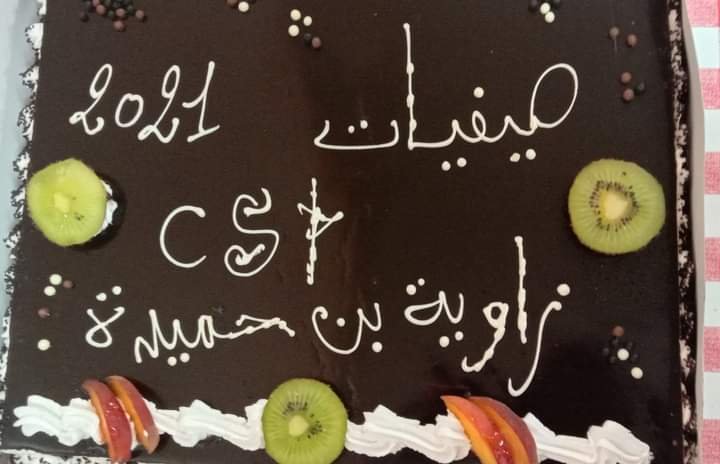 صيفيات 2021
CSP
زاوية بن حميدة